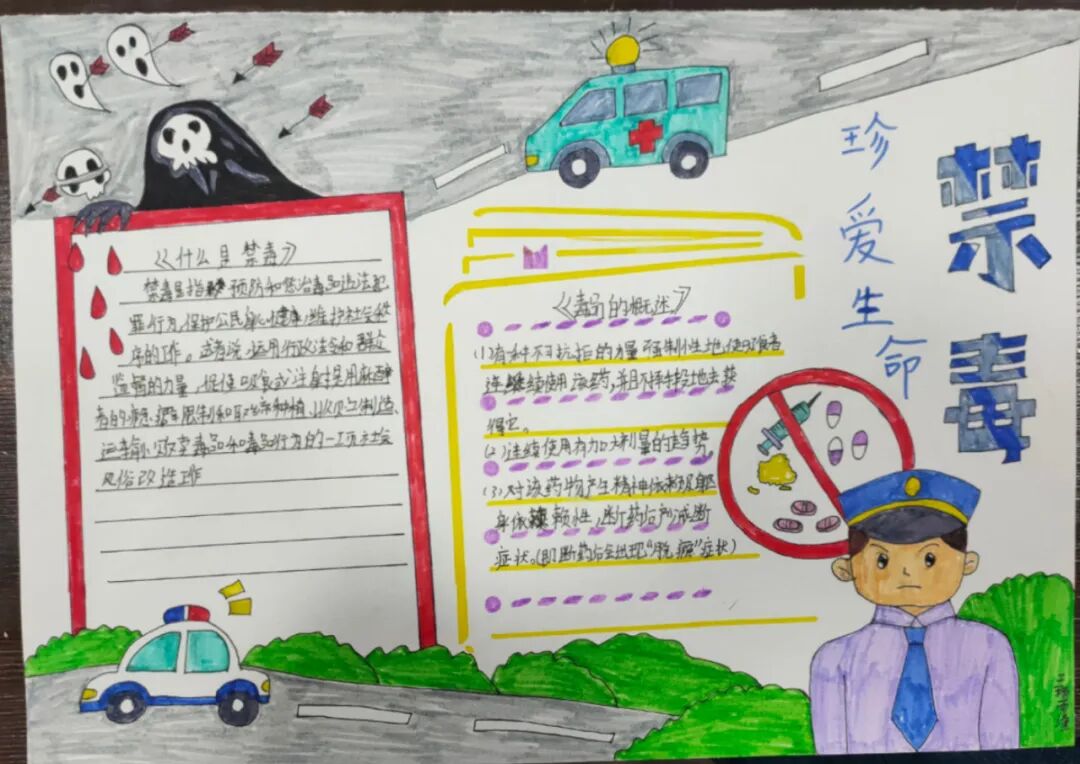 珍爱生命
禁毒
《什么是禁毒》
禁毒是指预防和惩治毒品违法犯
罪行为,保护公民身心健康,维护社会秩
序的工作。或者说,运用行政法令和群众
监督的力量,
运输以及毒品和毒品行为的一项社会
风俗改造工作
《毒品的概述》
(1)有种不可抗拒的力量强制性地使吸食者
连续使用该药,并且不择手段地去获
得它。
(2)连续使用有加大剂量的趋势。
(3)对该药物产生精神依赖及躯
身依赖性,断药后产减断
症状。(即断药后会出现“脱瘾”症状)